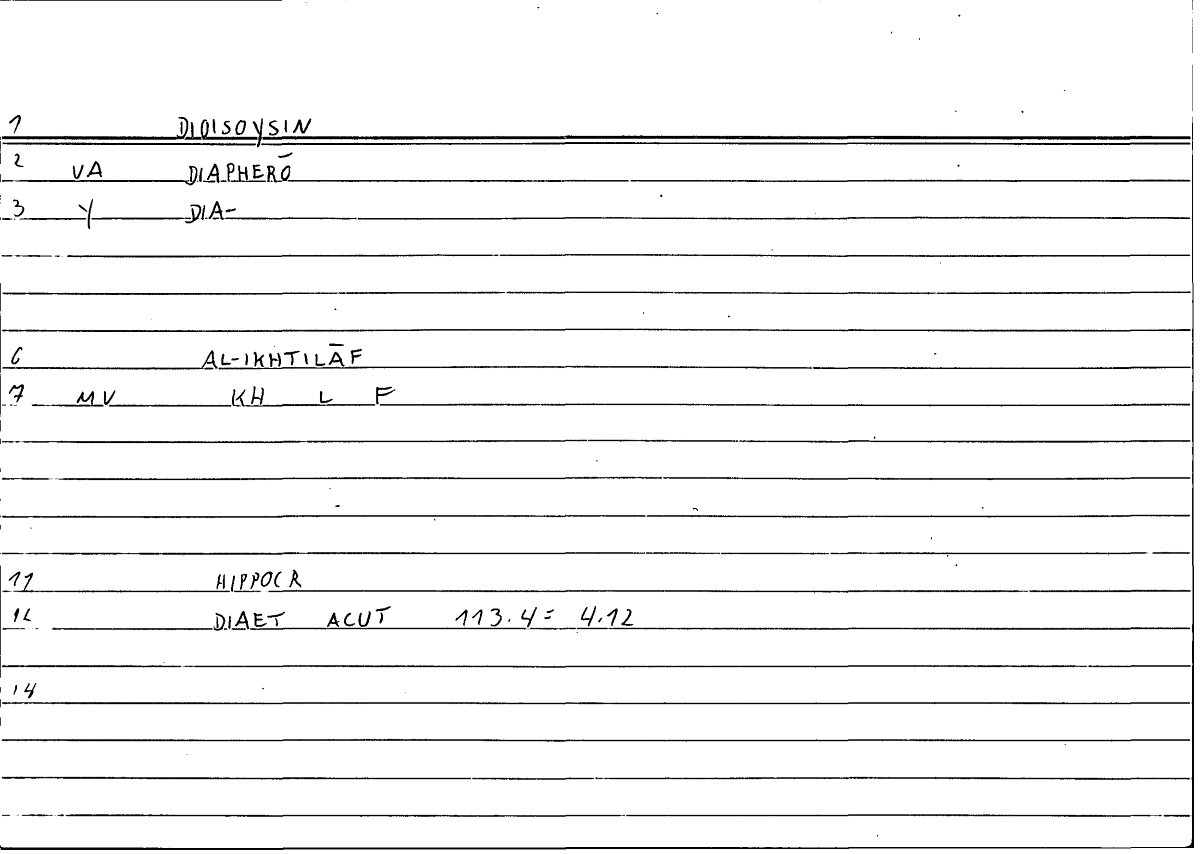 1 DIOISOYSIN
2 VA DIAPHERŌ
3 Y DIA-
6 AL-IKHTILĀF
7 MV KH L F
11 HIPPOCR
12 DIAET ACUT 113.4 = 4.12
14